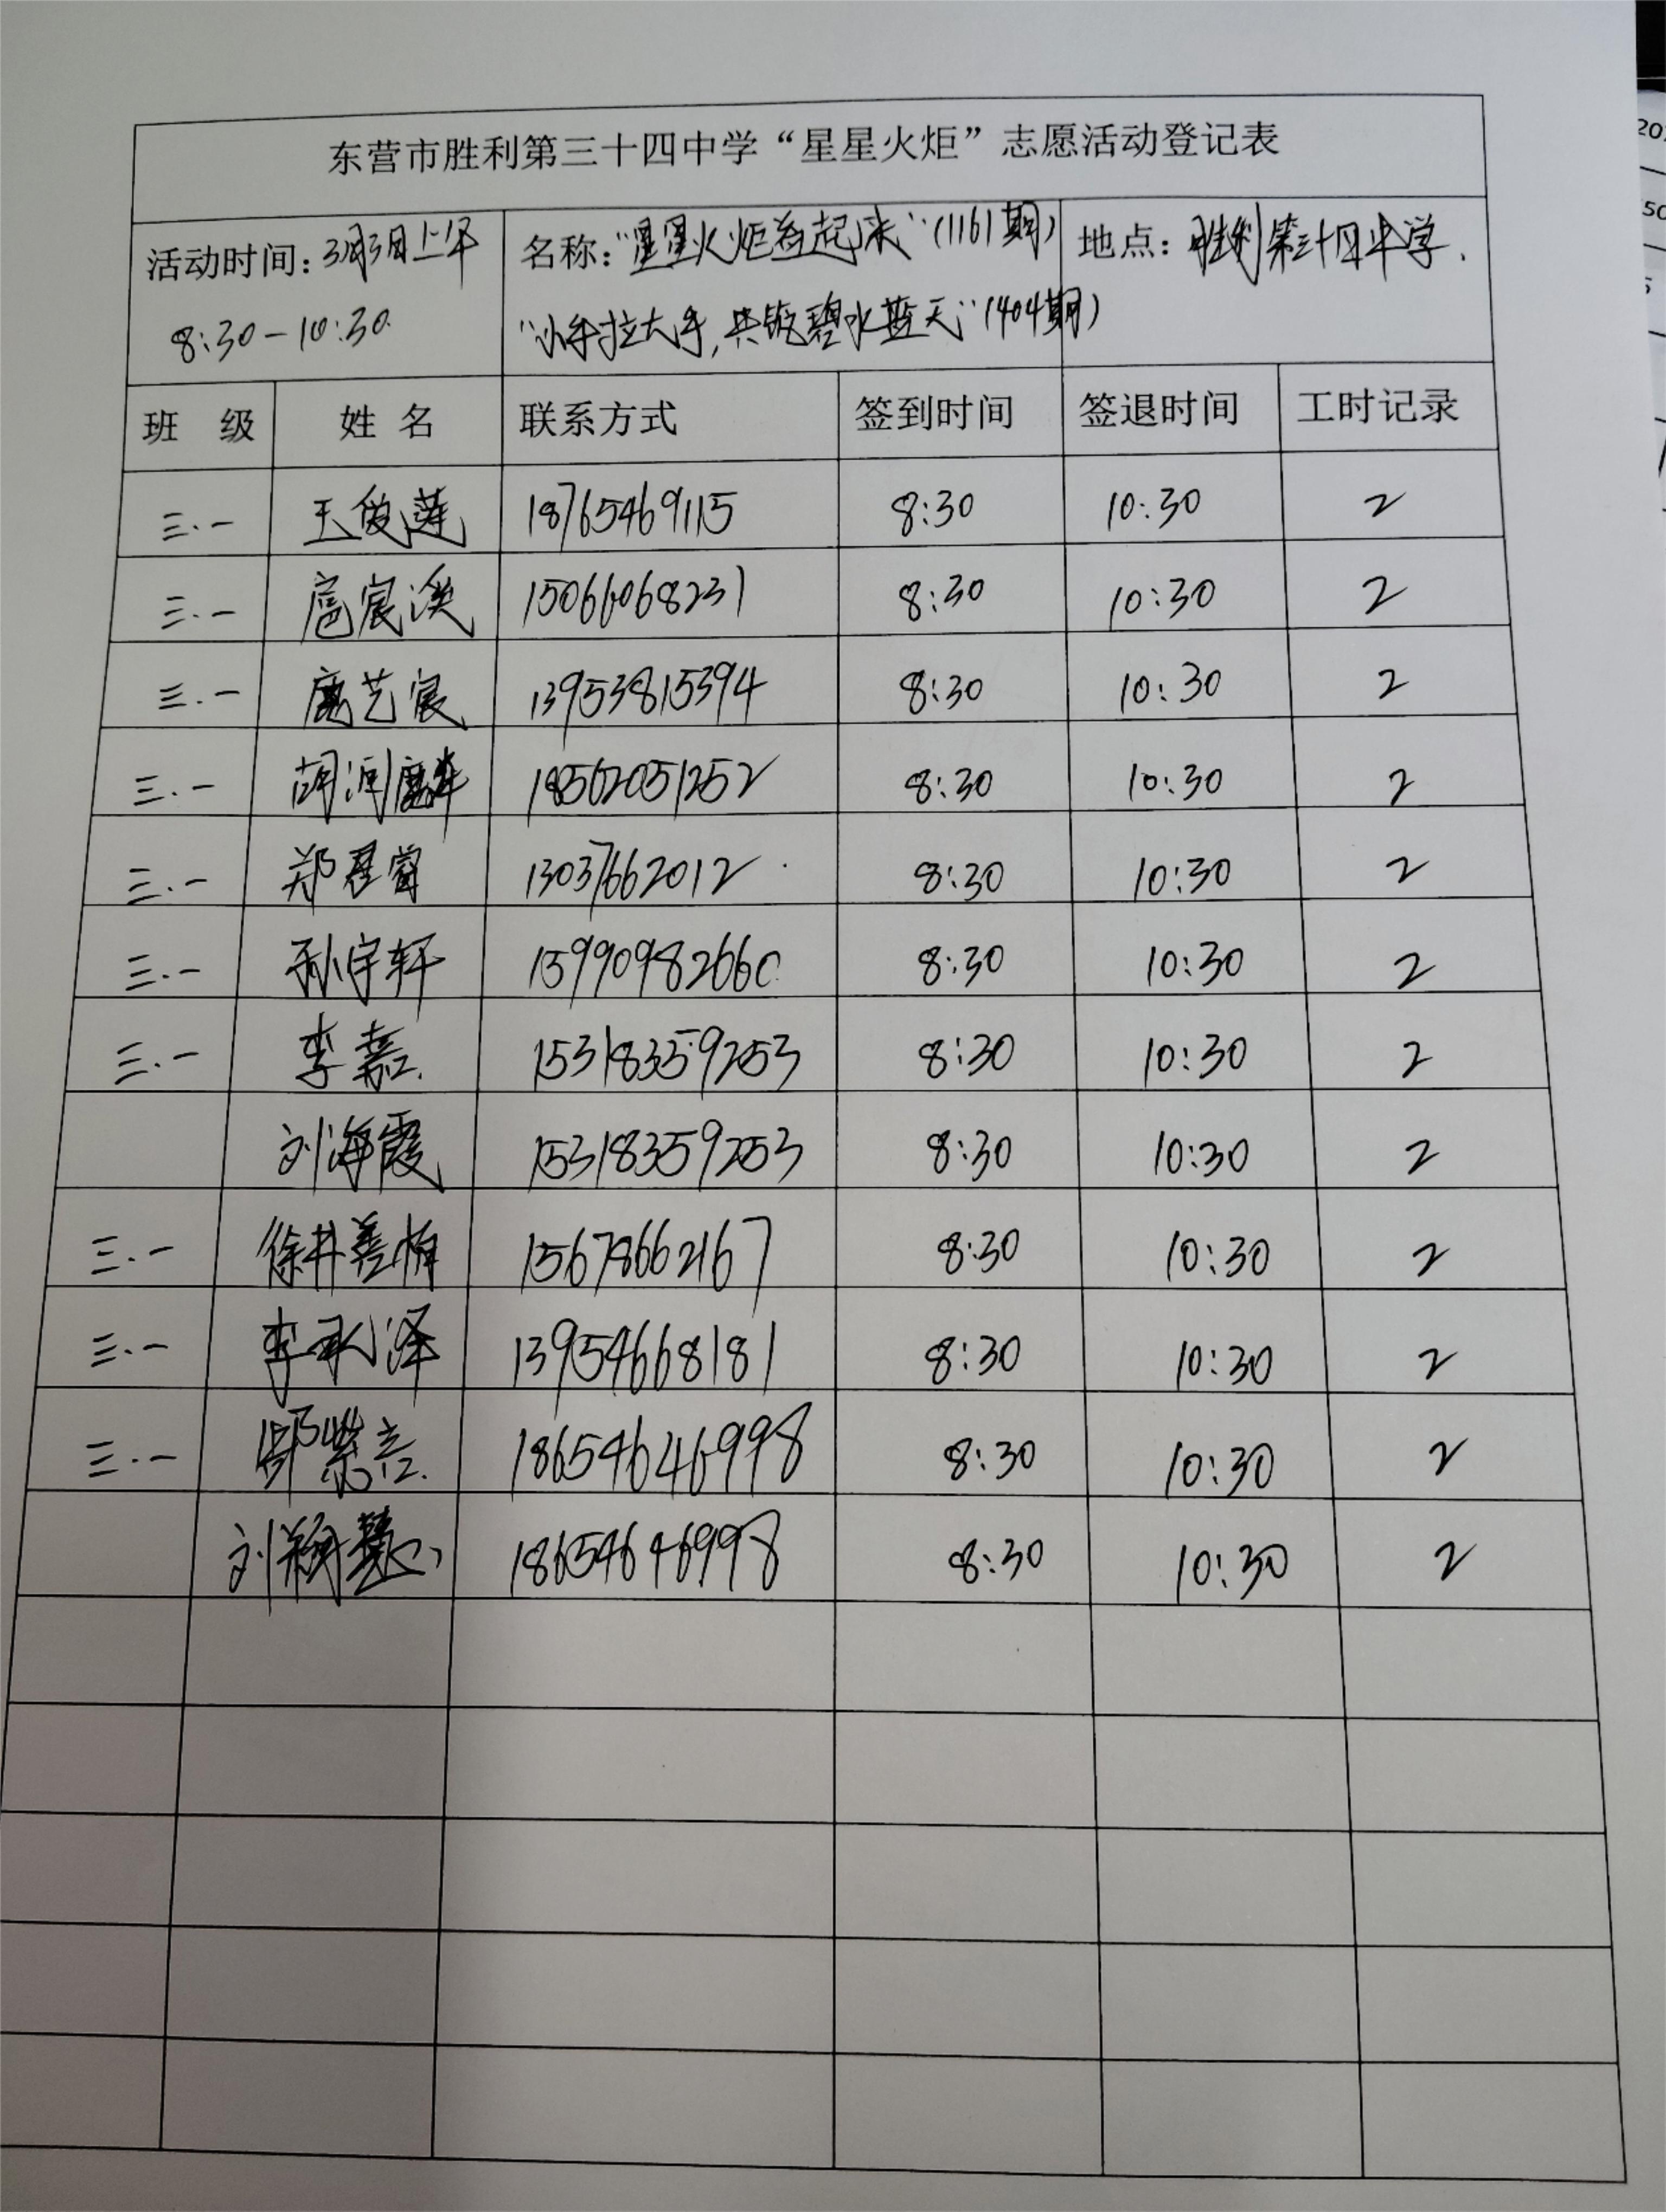 东营市胜利第三十四中学“星星火炬”志愿活动登记表
活动时间：3月3日上午 名称：“星星火炬 起来”（1161期） 地点：胜利第三十四中学.
8:30-10:30. “小手拉大手，共绘碧水蓝天”（404期）
班 级 姓 名 联系方式 签到时间 签退时间 工时记录
三.一 王俊莲 18765469115 8:30 10:30 2
三.一 扈宸溪 15066068231 8:30 10:30 2
三.一 扈艺宸 13953815394 8:30 10:30 2
三.一 胡润麟 18562051252 8:30 10:30 2
三.一 郑君睿 13037662012 8:30 10:30 2
三.一 孙宇轩 15990982660 8:30 10:30 2
三.一 李嘉 15318359253 8:30 10:30 2
刘海霞 15318359253 8:30 10:30 2
三.一 徐井善 15678662167 8:30 10:30 2
三.一 李承泽 13954668181 8:30 10:30 2
三.一 紫言 18654646998 8:30 10:30 2
刘颖慧 18654646998 8:30 10:30 2
20
50
5